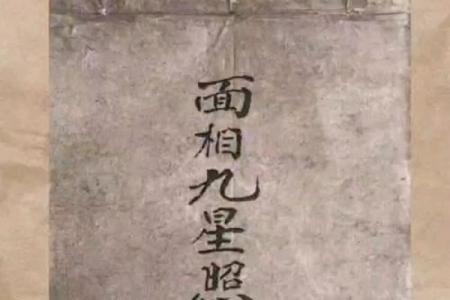 面相九星照